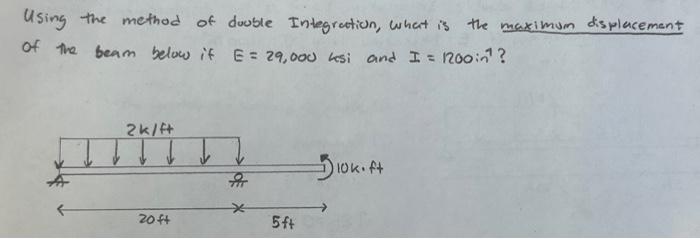 Using the method of double Integraction, what is the maximum displacement
of the beam below if E = 29,000 ksi and I = 1200 in⁴?
2k/ft
10k.ft
20ft
5ft